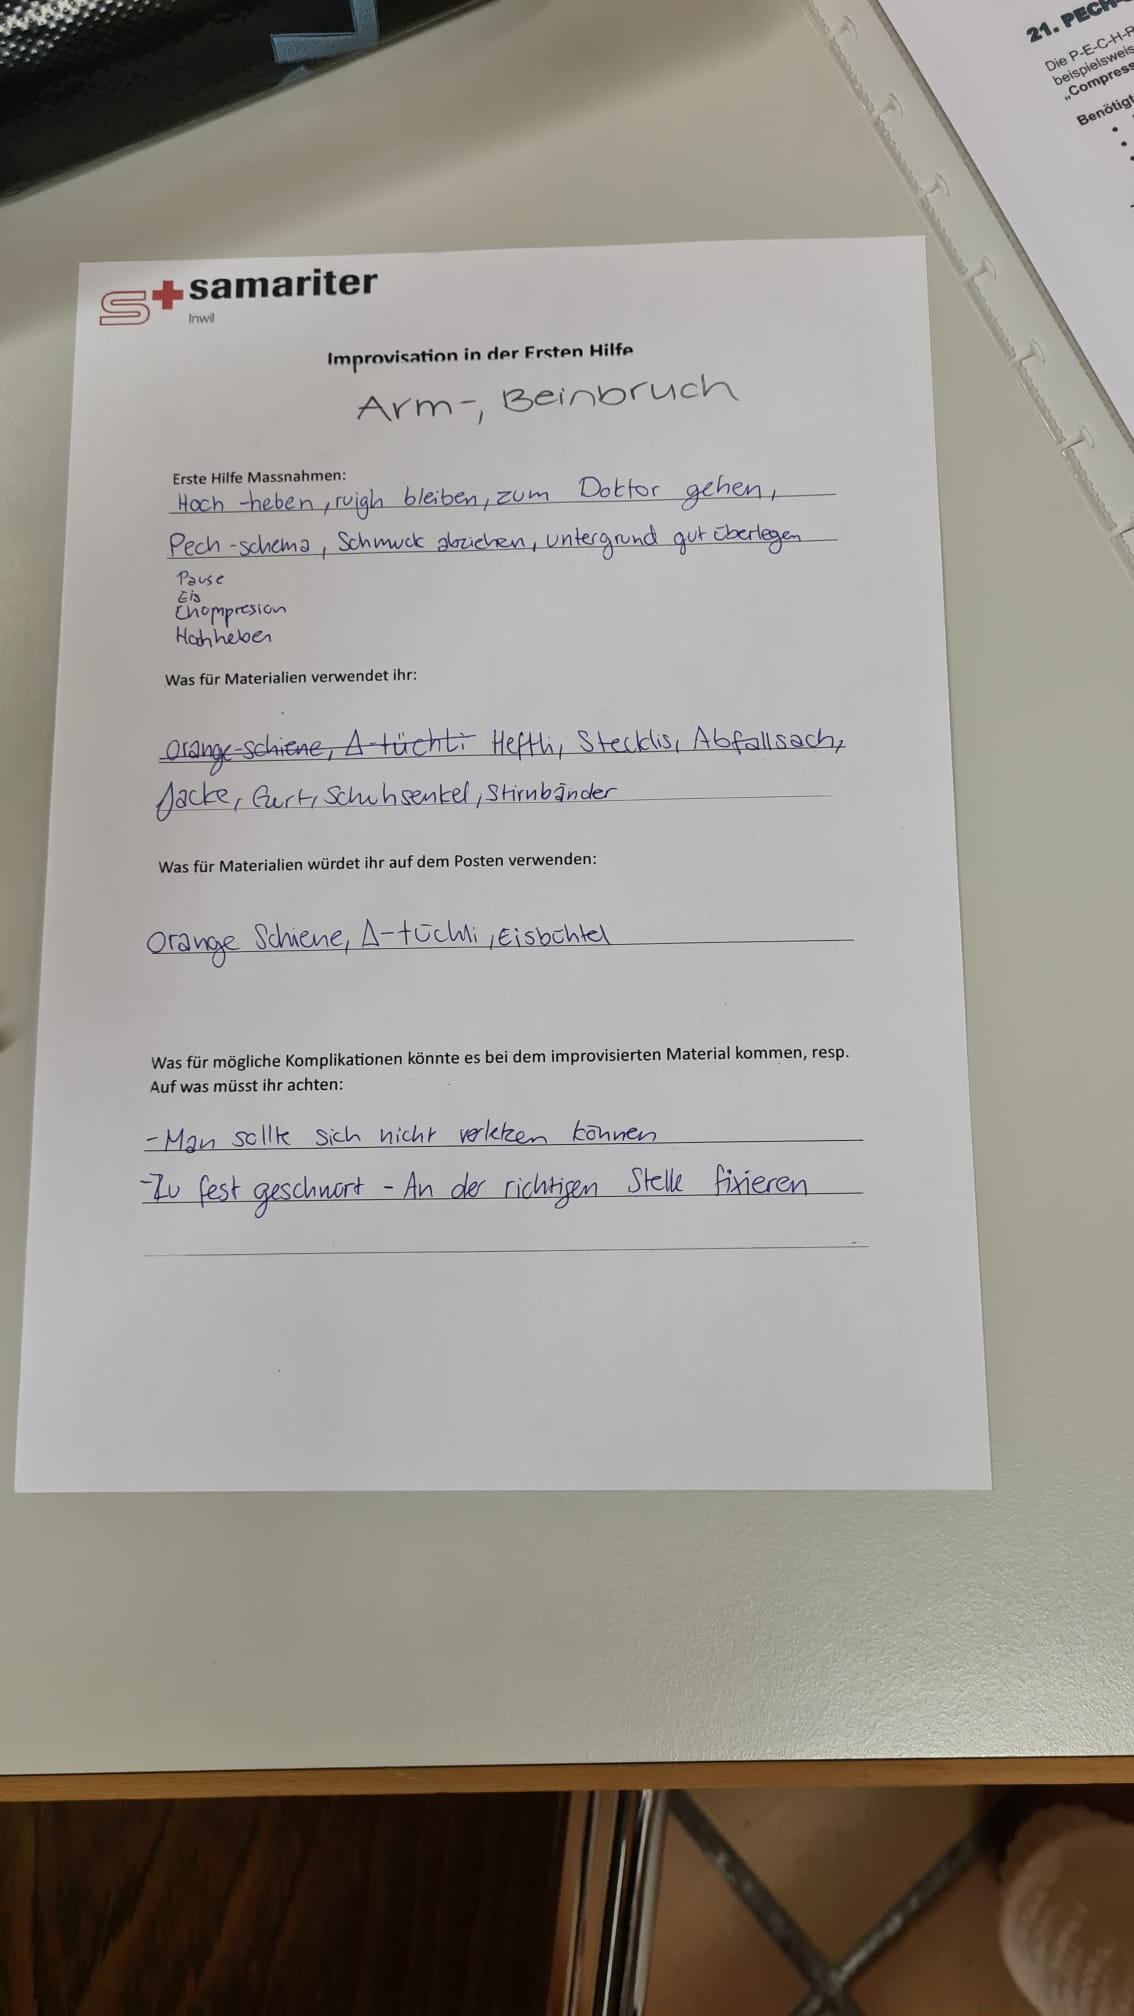 21. PECH-
Die P-E-C-H-R
beispielsweis
„Compress
Benötigt
samariter
Inwil
Improvisation in der Ersten Hilfe
Arm-, Beinbruch
Erste Hilfe Massnahmen:
Hoch -heben, ruigh bleiben, zum Doktor gehen,
Pech -schema, Schmuck abziehen, untergrund gut überlegen
Pause
Eis
Chompresion
Hochheben
Was für Materialien verwendet ihr:
Orange-schiene, Δ-tüchli Heftli, Stecklis, Abfallsach,
Jacke, Gurt, Schuhsenkel, Stirnbänder
Was für Materialien würdet ihr auf dem Posten verwenden:
Orange Schiene, Δ-tüchli, Eisbühtel
Was für mögliche Komplikationen könnte es bei dem improvisierten Material kommen, resp.
Auf was müsst ihr achten:
- Man sollte sich nicht verletzen können
- Zu fest geschnürt - An der richtigen Stelle fixieren